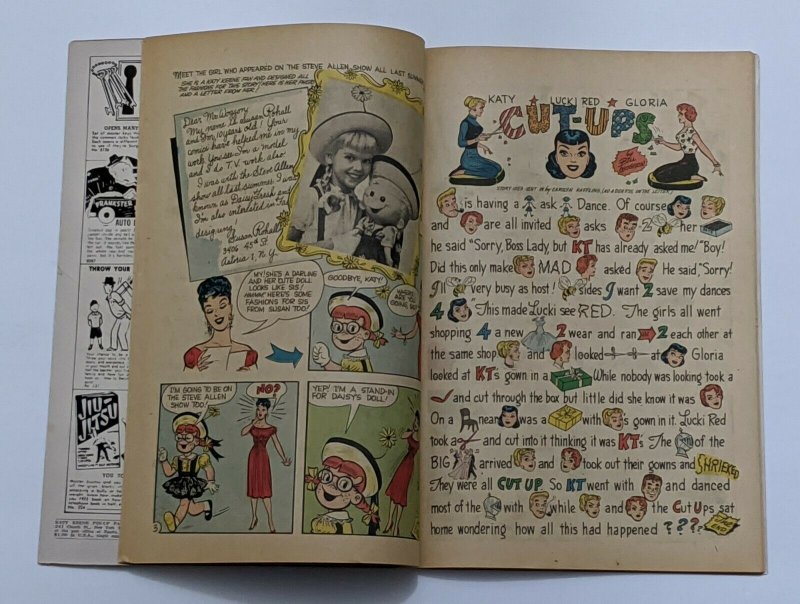 OPENS MANY
No. 5136
PRANKSTER
AUTO
THROW YOUR
JIU-
JITSU
YOU TO
KATY KEENE PIN-UP PA
MEET THE GIRL WHO APPEARED ON THE STEVE ALLEN SHOW ALL LAST SUMMER
SHE IS A KATY KEENE FAN AND DESIGNED ALL
THE FASHIONS FOR THIS STORY! HERE IS HER PHOTO
AND A LETTER FROM HER!
Dear Mr. Woggon
My name is Susan Rohall
and I'm 10 years old! Your
comics have helped me in my
work. You see I'm a model
and I do T.V. work also.
I was with the Steve Allen
show all last summer. I was
known as Daisy Fresh and
I'm also interested in
designing.
Susan Rohall
3406 45th St.
Astoria 1, N.Y.
MY! SHE'S A DARLING
AND HER CUTE DOLL
LOOKS LIKE SIS!
HMMM! HERE'S SOME
FASHIONS FOR SIS
FROM SUSAN TOO!
GOODBYE, KATY!
ARE YOU
I'M GOING TO BE ON
THE STEVE ALLEN
SHOW TOO!
NO?
YEP! I'M A STAND-IN
FOR DAISY'S DOLL!
3
KATY LUCKI RED GLORIA
CUT-UPS
by
BILL
WOGGON
STORY IDEA SENT IN BY CAROLYN
is having a ask Dance. Of course
and are all invited asks 2 her
he said "Sorry, Boss Lady, but KT has already asked me! "Boy!
Did this only make MAD asked He said, "Sorry!
I'll very busy as host! sides I want 2 save my dances
4 "This made Lucki see RED. The girls all went
shopping 4 a new 2 wear and ran 2 each other at
the same shop and looked at Gloria
looked at KT's gown in a While nobody was looking took a
and cut through the box but little did she know it was
On a near was a with 's gown in it. Lucki Red
took a and cut into it thinking it was KT's. The of the
BIG arrived and took out their gowns and SHRIEKED
They were all CUT UP. So KT went with and danced
most of the with while and the Cut Ups sat
home wondering how all this had happened ? ? ?
THE
END